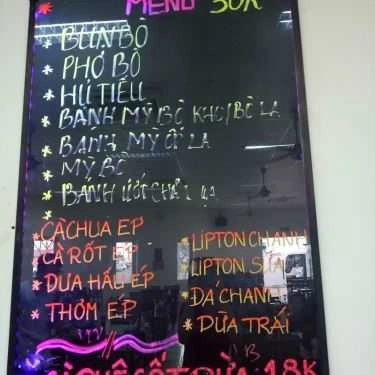 MENU 30K
* BÚN BÒ
* PHỞ BÒ
* HỦ TIẾU
* BÁNH MỲ BÒ KHO/BÒ LA
* BÁNH MỲ ỐP LA
* MỲ BÒ
* BÁNH ƯỚT CHẢ LỤA
* CÀ CHUA ÉP
* CÀ RỐT ÉP
* DƯA HẤU ÉP
* THƠM ÉP
* LIPTON CHANH
* LIPTON SỮA
* ĐÁ CHANH
* DỪA TRÁI
18K